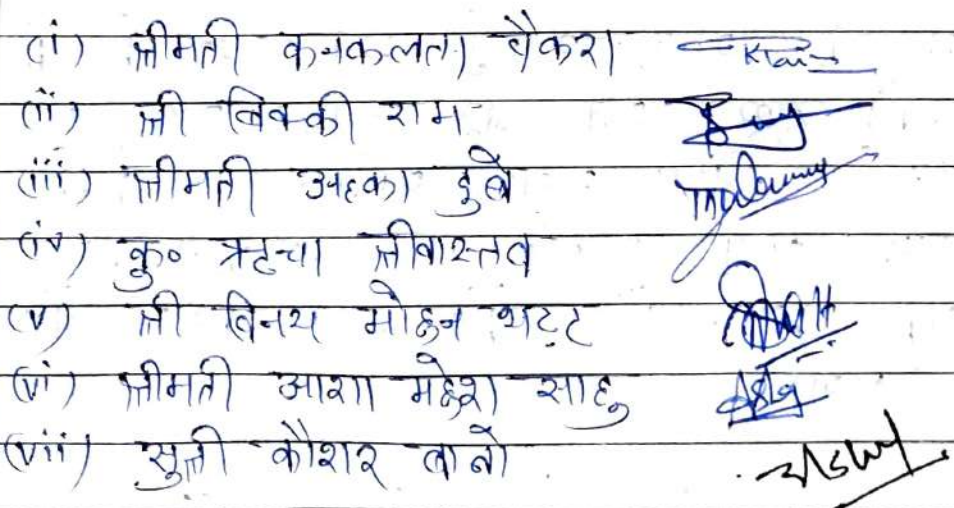 (i) श्रीमती कनकलता पैकरा
(ii) श्री विक्की राम
(iii) श्रीमती दुबे
(iv) कु० ऋचा श्रीवास्तव
(v) श्री विनय मोहन भट्ट
(vi) श्रीमती आशा महेश साहु
(vii) सुश्री कौशर बानो